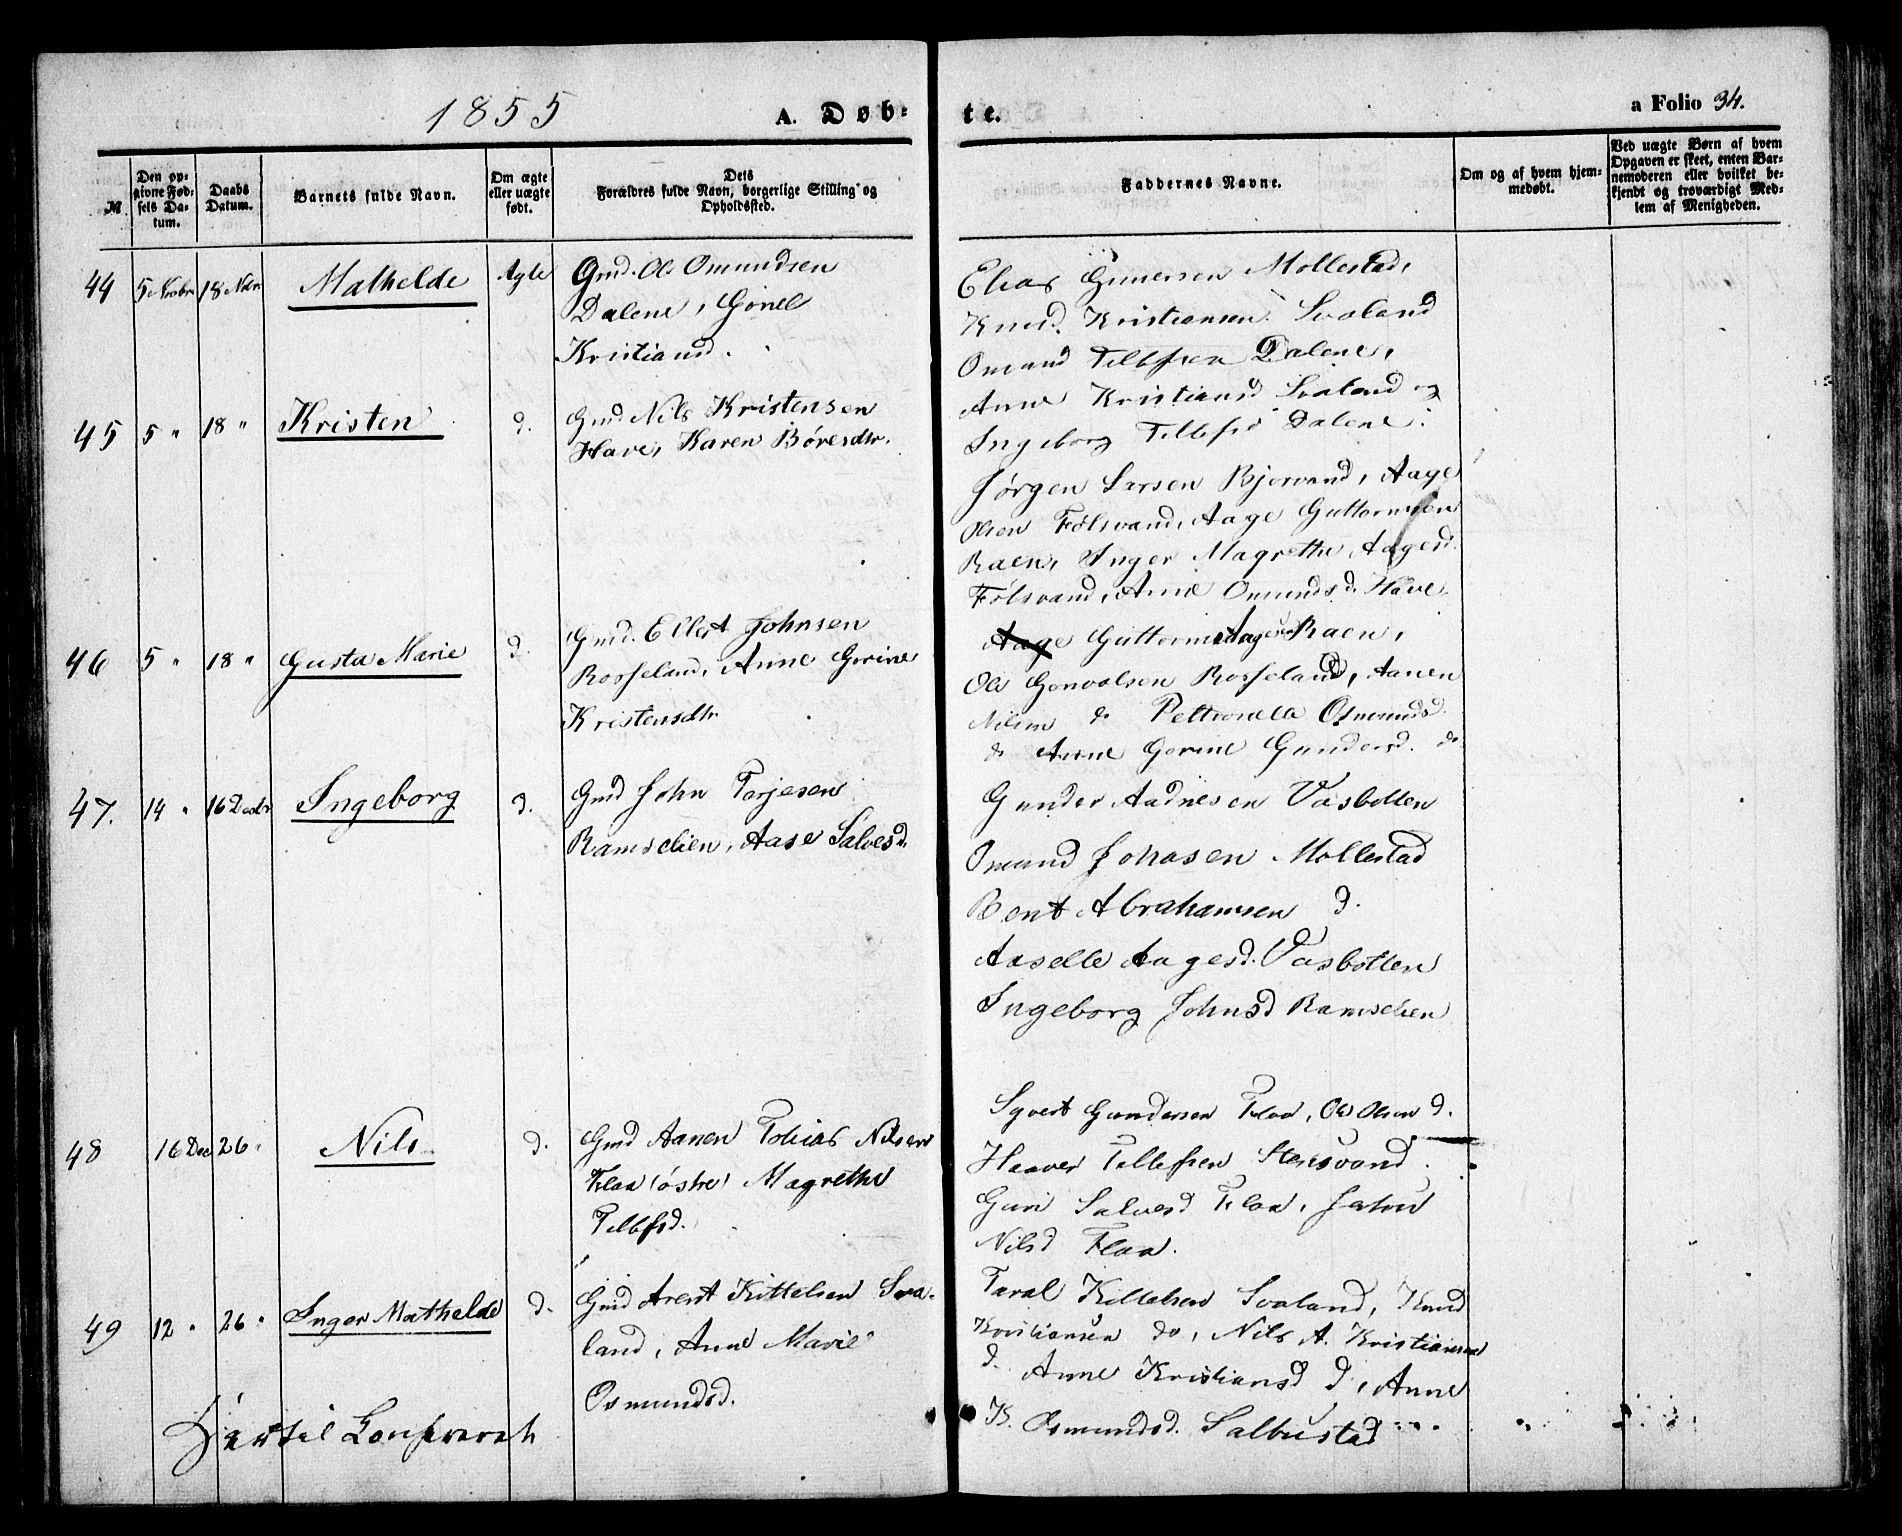 1855
A. Døb-
te.
a Folio 34.
M
Den op-
givne Fød-
sels Da-
tum.
Daabs
Datum.
Barnets fulde Navn.
Om ægte
eller uægte
født.
Dets
Forældres fulde Navn, borgerlige Stilling og
Opholdssted.
Faddernes Navne.
Om og af hvem hjem-
medøbt.
Ved uægte Børn af hvem
Opgaven er skeet, enten Bar-
nemoderen eller hvilket be-
kjendt og troværdigt Med-
lem af Menigheden.
44 5 Novbr 18 Novbr Mathelde Ægte Gmd. Ole Omundsen
Dalene, Gonel
Kristiansd.
Elias Gunersen Mollestad,
Knud Kristiansen Svaland
Omund Tellefsen Dalene,
Anne Kristiansd Svaland og
Ingeborg Tellefsd Dalene.
45 5 " 18 " Kristen d. Gmd. Nils Kristensen
Have, Karen Böresdtr.
Jörgen Larsen Bjorvand, Aage
Olsen Fölsvand, Aage Guttormsen
Raen, Inger Magrethe Aagesd.
Fölsvand, Anne Omundsd. Have.
46 5 " 18 " Gusta Marie d. Gmd. Ellef Johnsen
Rosseland, Anne Gorine
Kristensdtr
Aage Guttorm Aagesen Raen,
Ole Gonvalsen Rosseland, Aanen
Nilsen do Pettronella Osmundsd.
do Anne Gorine Gundersd. do
47. 14 " 16 Decbr Ingeborg d. Gmd John Terjesen
Ramselien, Aase Salvesd.
Gunder Aadnesen Vasbotten
Omund Johnsen Mollestad
Bent Abrahamsen d.
Aaselle Aagesd. Vasbotten
Ingeborg Johnsd Ramselien
48 16 Dec 26 " Nils d. Gmd Aanen Tobias Nilsen
Flaa (östre) Magrethe
Tellefsd.
Syvert Gundersen Flaa, Ole Olsen d.
Haaver Tellefsen Stensvand
Guri Salvesd Flaa,
Nilsd Flaa.
49 12 " 26 " Inger Mathelde d. Gmd Arent Kittelsen Sva-
land, Anne Marie
Osmundsd.
Taral Kittelsen Svaland, Knud
Kristiansen do, Nils A. Kristiansen
d. Anne Kristiansd d, Anne
K. Osmundsd. Salbustad
Hertil Confereret